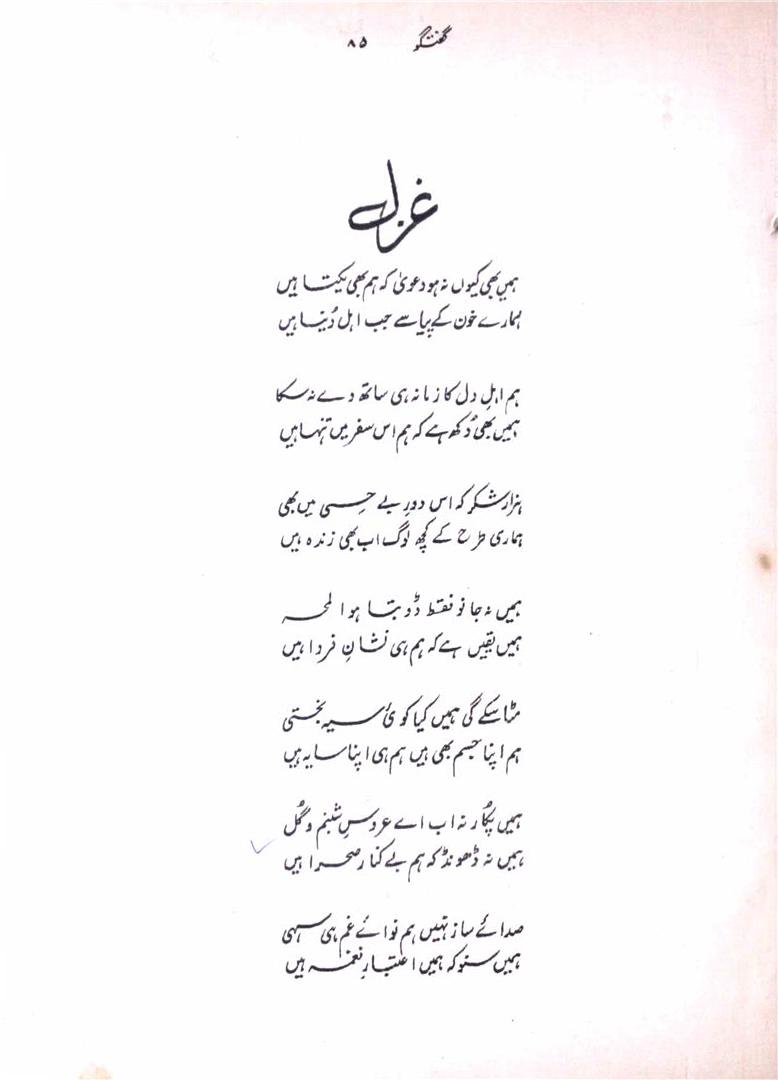 گفتگو ۸۵
غزل
ہمیں بھی کیوں نہ ہو دعویٰ کہ ہم بھی یکتا ہیں
ہمارے خون کے پیاسے جب اہل دُنیا ہیں
ہم اہلِ دل کا زمانہ ہی ساتھ دے نہ سکا
ہمیں بھی دُکھ ہے کہ ہم اس سفر میں تنہا ہیں
ہزار شکر کہ اس دورِ بے حسی میں بھی
ہماری طرح کے کچھ لوگ اب بھی زندہ ہیں
ہمیں نہ جانو فقط ڈوبتا ہوا لمحہ
ہمیں یقیں ہے کہ ہم ہی نشانِ فردا ہیں
مٹا سکے گی ہمیں کیا کوئی سیہ بختی
ہم اپنا جسم بھی ہیں ہم ہی اپنا سایہ ہیں
ہمیں پکُار نہ اب اے عروسِ شبنم و گُل
ہمیں نہ ڈھونڈ کہ ہم بے کنار صحرا ہیں
صدائے ساز نہیں ہم نوائے غم ہی سہی
ہمیں سنو کہ ہمیں اعتبارِ نغمہ ہیں